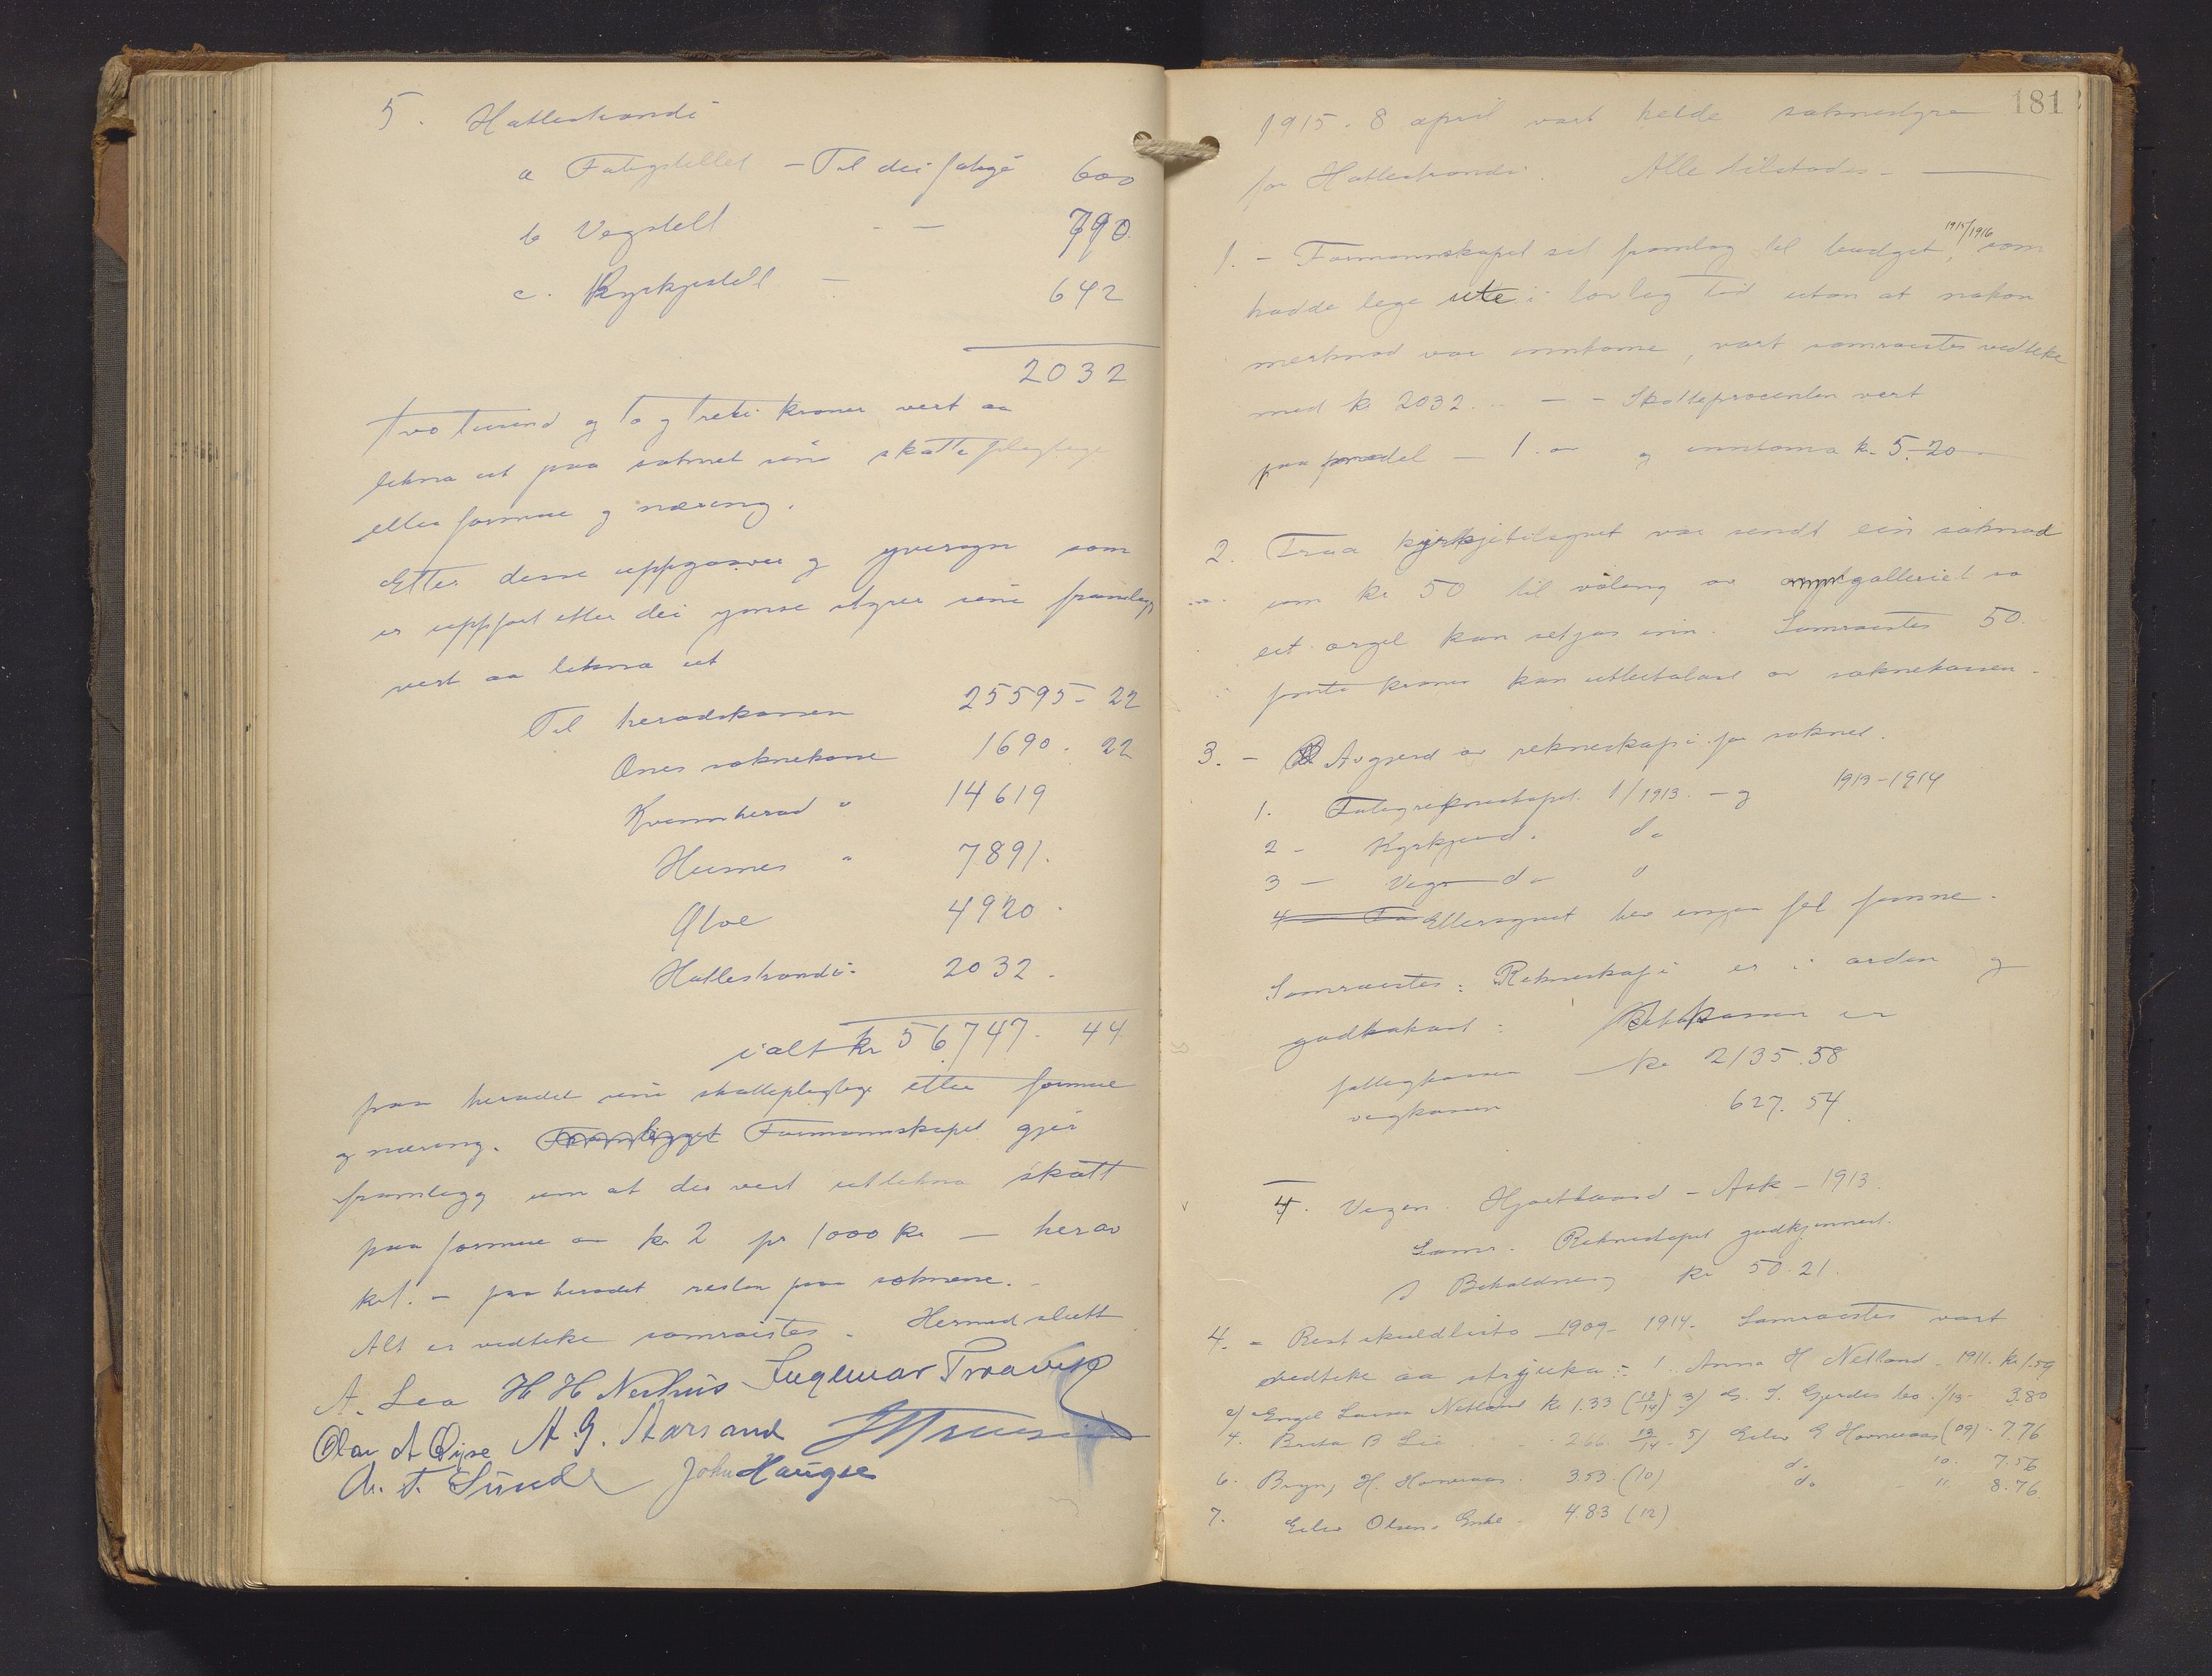 5. Hatlestrandi
a Fatigstellet - Til dei fatige 600
b Vegstell - - 790.
c. Kyrkjestell - 642
2032
Tvo tusund og to og treti kroner vert aa
likna ut paa soknet sine skatteplegtige
etter formue og næring.
Etter desse uppgaaver og yversyn som
er uppført etter dei ymse styrer sine framlegg
vert aa likna ut
Til heradskassen 25595 - 22
Ænes soknekasse 1690. 22
Kvinnherad " 14619
Husnes " 7891.
Ølve 4920.
Hatlestrandi 2032.
ialt kr 56747. 44
paa heradet sine skatteplegtige etter formue
og næring. Formannskapet gjer
framlegg um at det vert utlikna skatt
paa formue av kr 2 pr 1000 kr - herav
kr 1. - paa heradet resten paa soknene. -
Alt er vedteke samrøistes. Hermed slutt
A. Lea H H Nerhus Ingemar
Olav A Øije A. G. Aarsand
A. T. Sunde John Hauge
181
1915. 8 april vart helde soknestyre
for Hatlestrandi. Alle tilstades. -
1. - Formannskapet set framlag til budget 1915/1916, som
hadde lege ute i lovleg tid utan at nokon
merknad var innkome, vart samrøistes vedteke
med kr 2032. - - Skatteprocenten vert
paa formue 1. av og inntoma k. 5.20
2. Fraa kyrkjetilsynet var sendt ein søknad
um kr 50 til maaling av galleriet so
eit orgel kan setjas inn. Samrøistes 50.
femti kroner kan utbetalast av soknekassen.
3. - Avgjerd av rekneskapi for soknet.
1. Fatigrekneskapet 1/1913. - og 1913-1914
2 - Kyrkje d. do
3 - Veg do "
Ettersynet hev ingen feil funne.
Samrøistes: Rekneskapi er i orden og
godkjent: Kassen er
fattigkassen kr 2135.58
vegkassen 627.54
4. Vegen. Hjortaas - Ask - 1913.
Samr. Rekneskapet godkjennest.
Behaldning kr 50.21.
4. - Rest skuldlista 1909 - 1914. Samrøistes vart
vedteke aa stryuka: 1. Anna H Netland - 1911. kr 1.59
2) Engel Netland kr 1.33 (13/14) 3) G. S. Gjerdes bo 1/13 - 3.80
4. Brita B Lie - 2.66 13/14 - 5) Eilev G Horneaas (09). 7.76
6. Bryn, H. Horneaas. 3.53. (10) do 10. 7.56
do 11. 8.76
7. Eilev Olsens Enke - 4.83 (12)